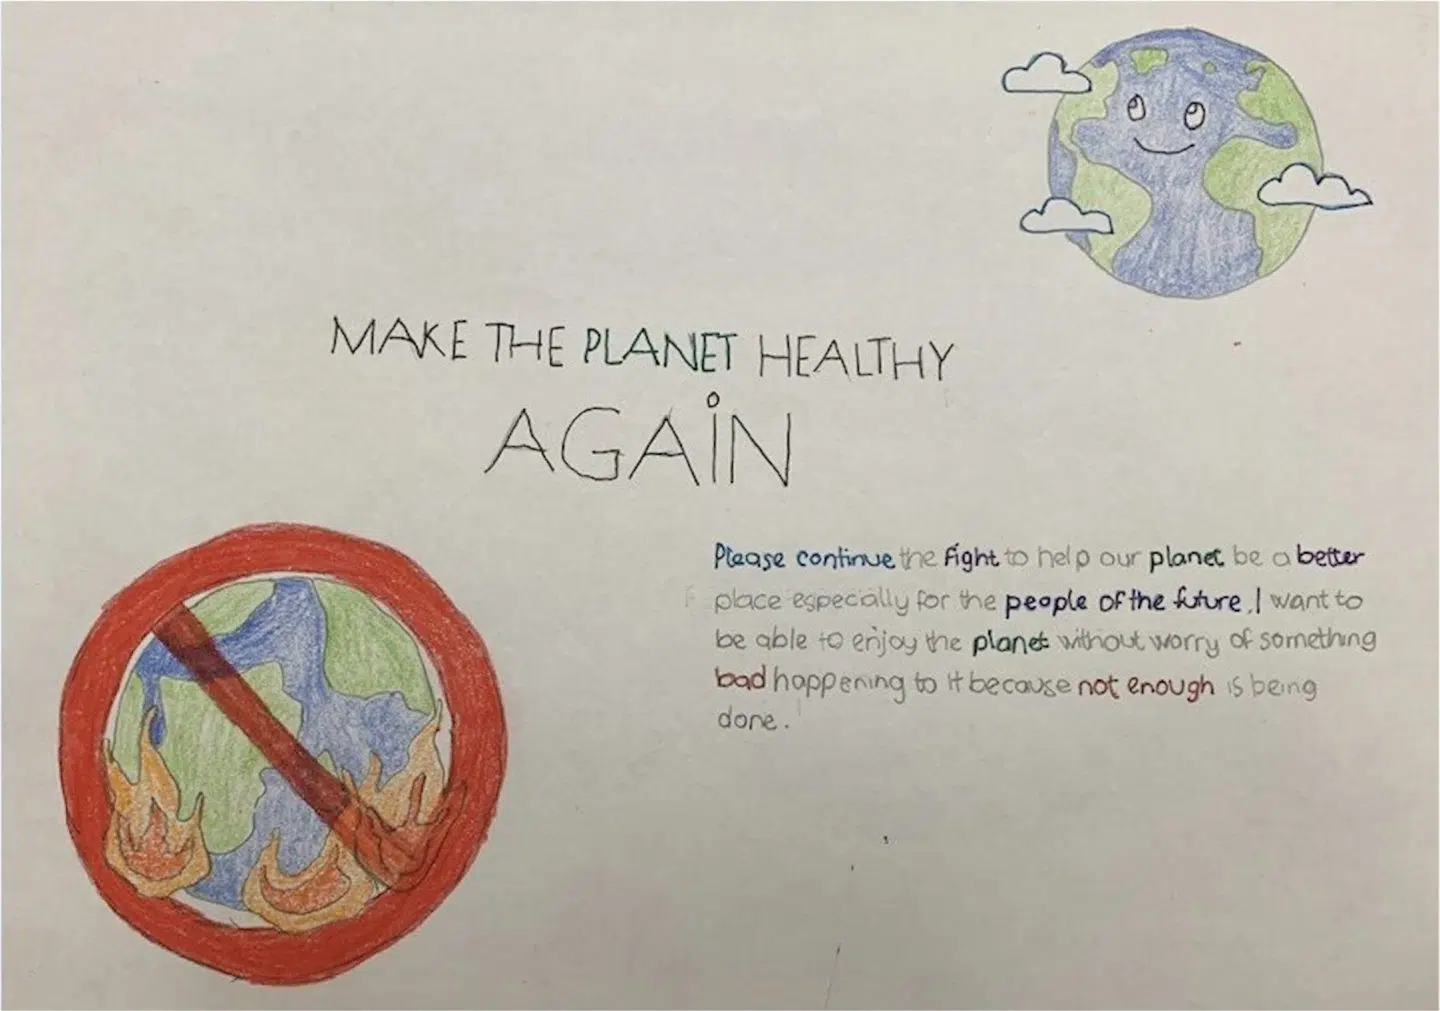 MAKE THE PLANET HEALTHY
AGAiN
Please continue the fight to help our planet be a better
place especially for the people of the future. I want to
be able to enjoy the planet without worry of something
bad happening to it because not enough is being
done.